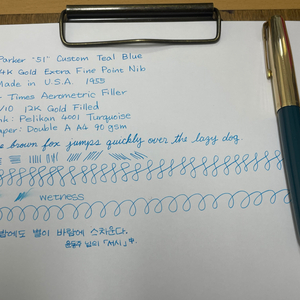 Parker '51' Custom Teal Blue
14K Gold Extra Fine Point Nib
Made in U.S.A. 1955
Times Aerometric Filler
1/10 12K Gold Filled
Ink: Pelikan 4001 Turquoise
Paper: Double A A4 90 gsm
brown fox jumps quickly over the lazy dog.
wetness
밤에도 별이 바람에 스치운다.
윤동주 님의 「서시」 中.